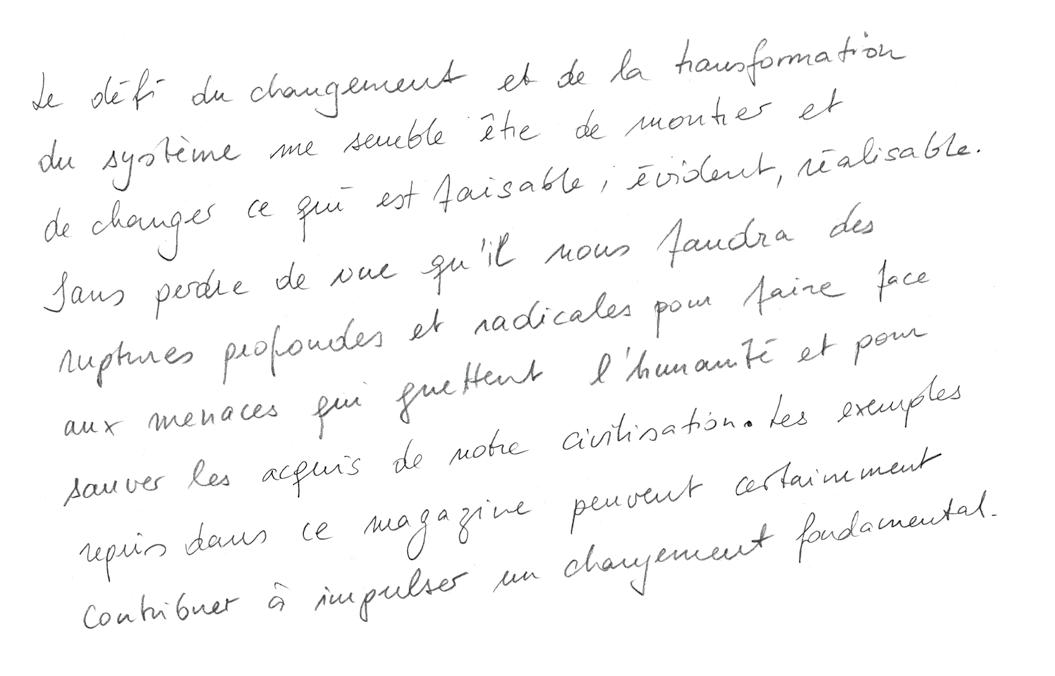 Le défi du changement et de la transformation
du système me semble être de montrer et
de changer ce qui est faisable, évident, réalisable.
Sans perdre de vue qu'il nous faudra des
ruptures profondes et radicales pour faire face
aux menaces qui guettent l'humanité et pour
sauver les acquis de notre civilisation. Les exemples
repris dans ce magazine peuvent certainement
contribuer à impulser un changement fondamental.